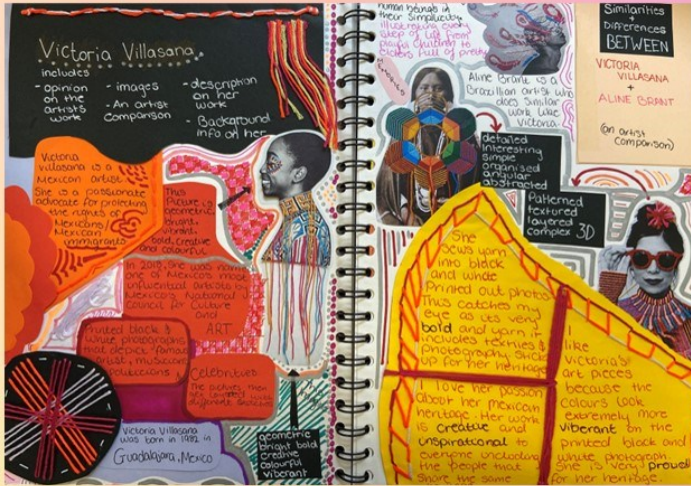 Victoria Villasana
includes
- opinion
on the
artists
work
- images
- An artist
comparison
- description
on her
work
- Background
info on her
Victoria
Villasana is a
Mexican artist.
She is a passionate
advocate for protecting
the rights of
Mexicans/
Mexican
immigrants
This
Picture is
geometric,
bright,
vibrant,
bold, creative
and colourful
In 2019, She was
one of Mexico's most
influential artists by
Mexico's National
Council for Culture
and
ART
Printed black &
white photographs
that depict famous
artist, musicians
politicians &
Celebrities
The pictures then
get
with
different
Victoria Villasana
was born in 1982 in
Guadalajara, Mexico
geometric
bright bold
creative
colourful
viberant
human beings in
their simplicity,
illustrating every
step of life from
playful children to
elders full of pretty
Aline Brant is a
Brazillian artist who
does similar
work like
Victoria.
detailed
interesting
simple
organised
angular
abstracted
Patterned
textured
layered
complex 3D
Similarities
+
Differences
BETWEEN
VICTORIA
VILLASANA
+
ALINE BRANT
(an artist
comparison)
She
sews yarn
into black
and white
Printed out photos
Thus catches my
eye as its very
bold and yarn it
includes textiles &
photography. Sticks
up for her heritage
I love her passion
about her mexican
heritage. Her work
is creative and
inspirational to
everyone including
the people that
share the same
I
like
Victoria's
art pieces
because the
colours look
extremely more
viberant on the
printed black and
white photograph.
She is very proud
for her heritage.